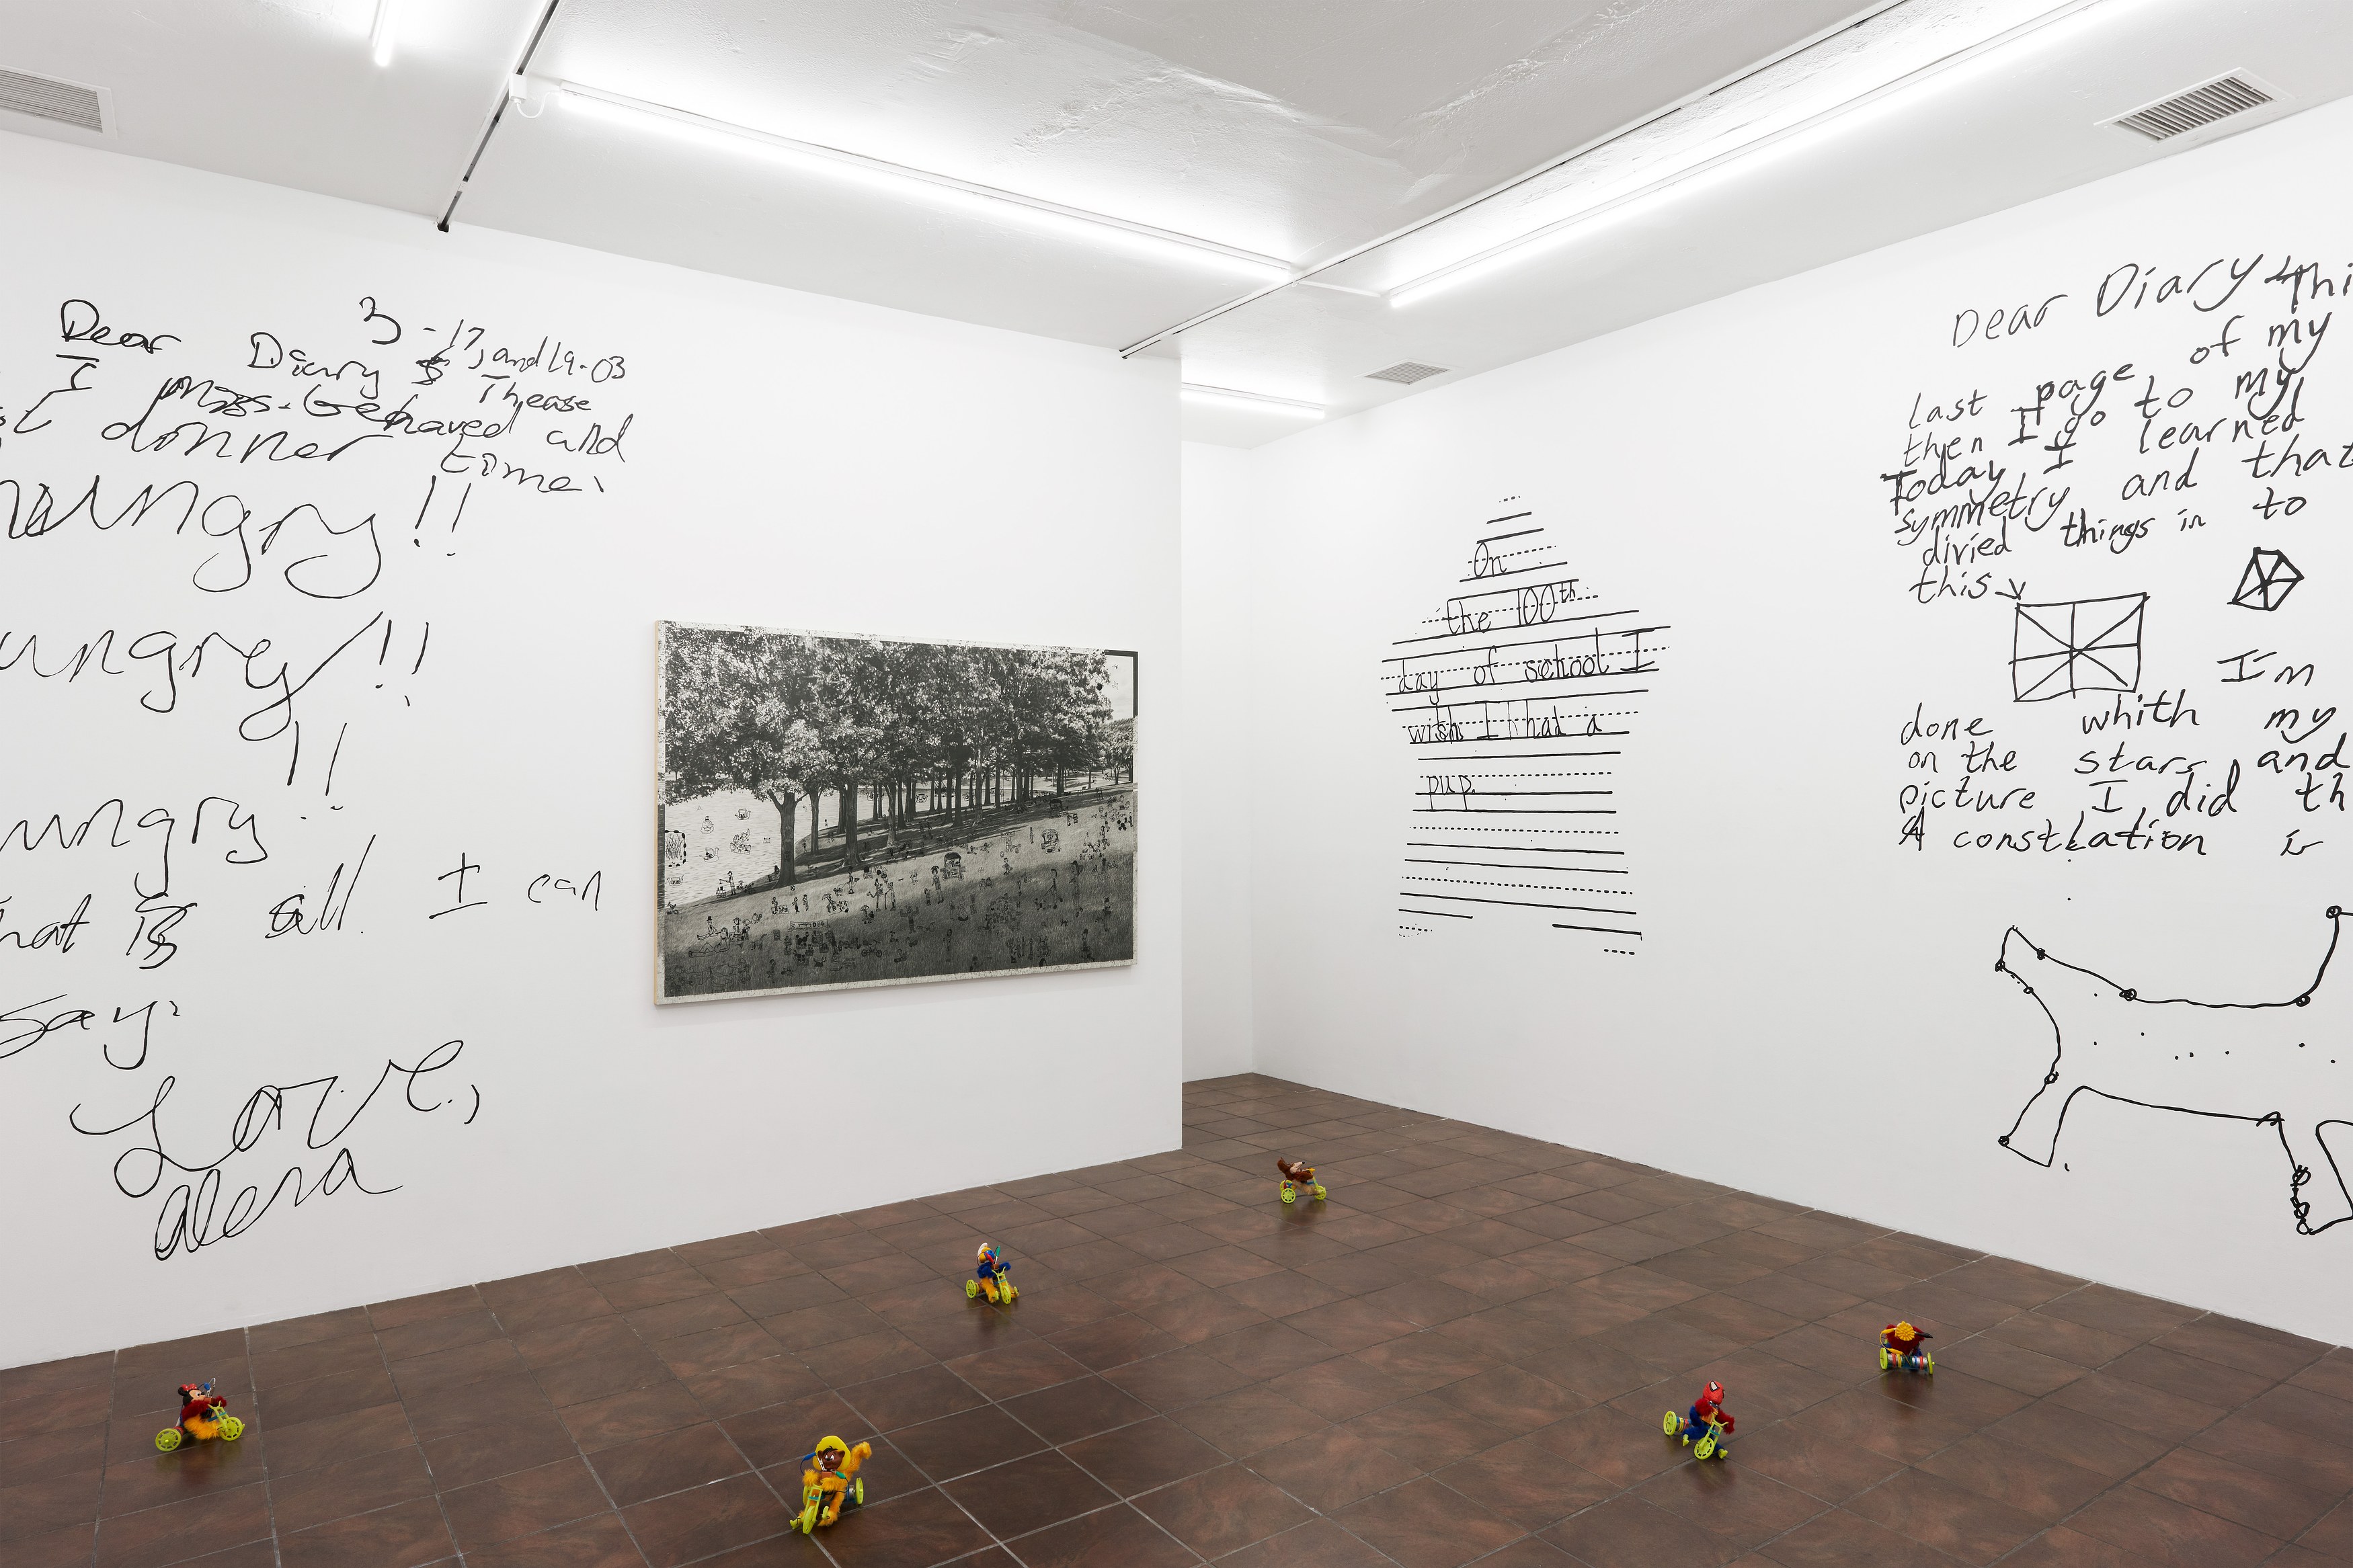 3-17, and 19-03
Dear Diary Thease
I miss-behaved and
donner time.
hungry!!
ungry!!
!!
ungry
hat is all I can
say.
Love,
alexa
On
the 100th
day of school I
wish I had a
pup.
Dear Diary thi
last page of my
then I go to my
Today I learned
symmetry and that
divied things in to
this
I'm
done whith my
on the stars, and
picture I did th
A constlation is